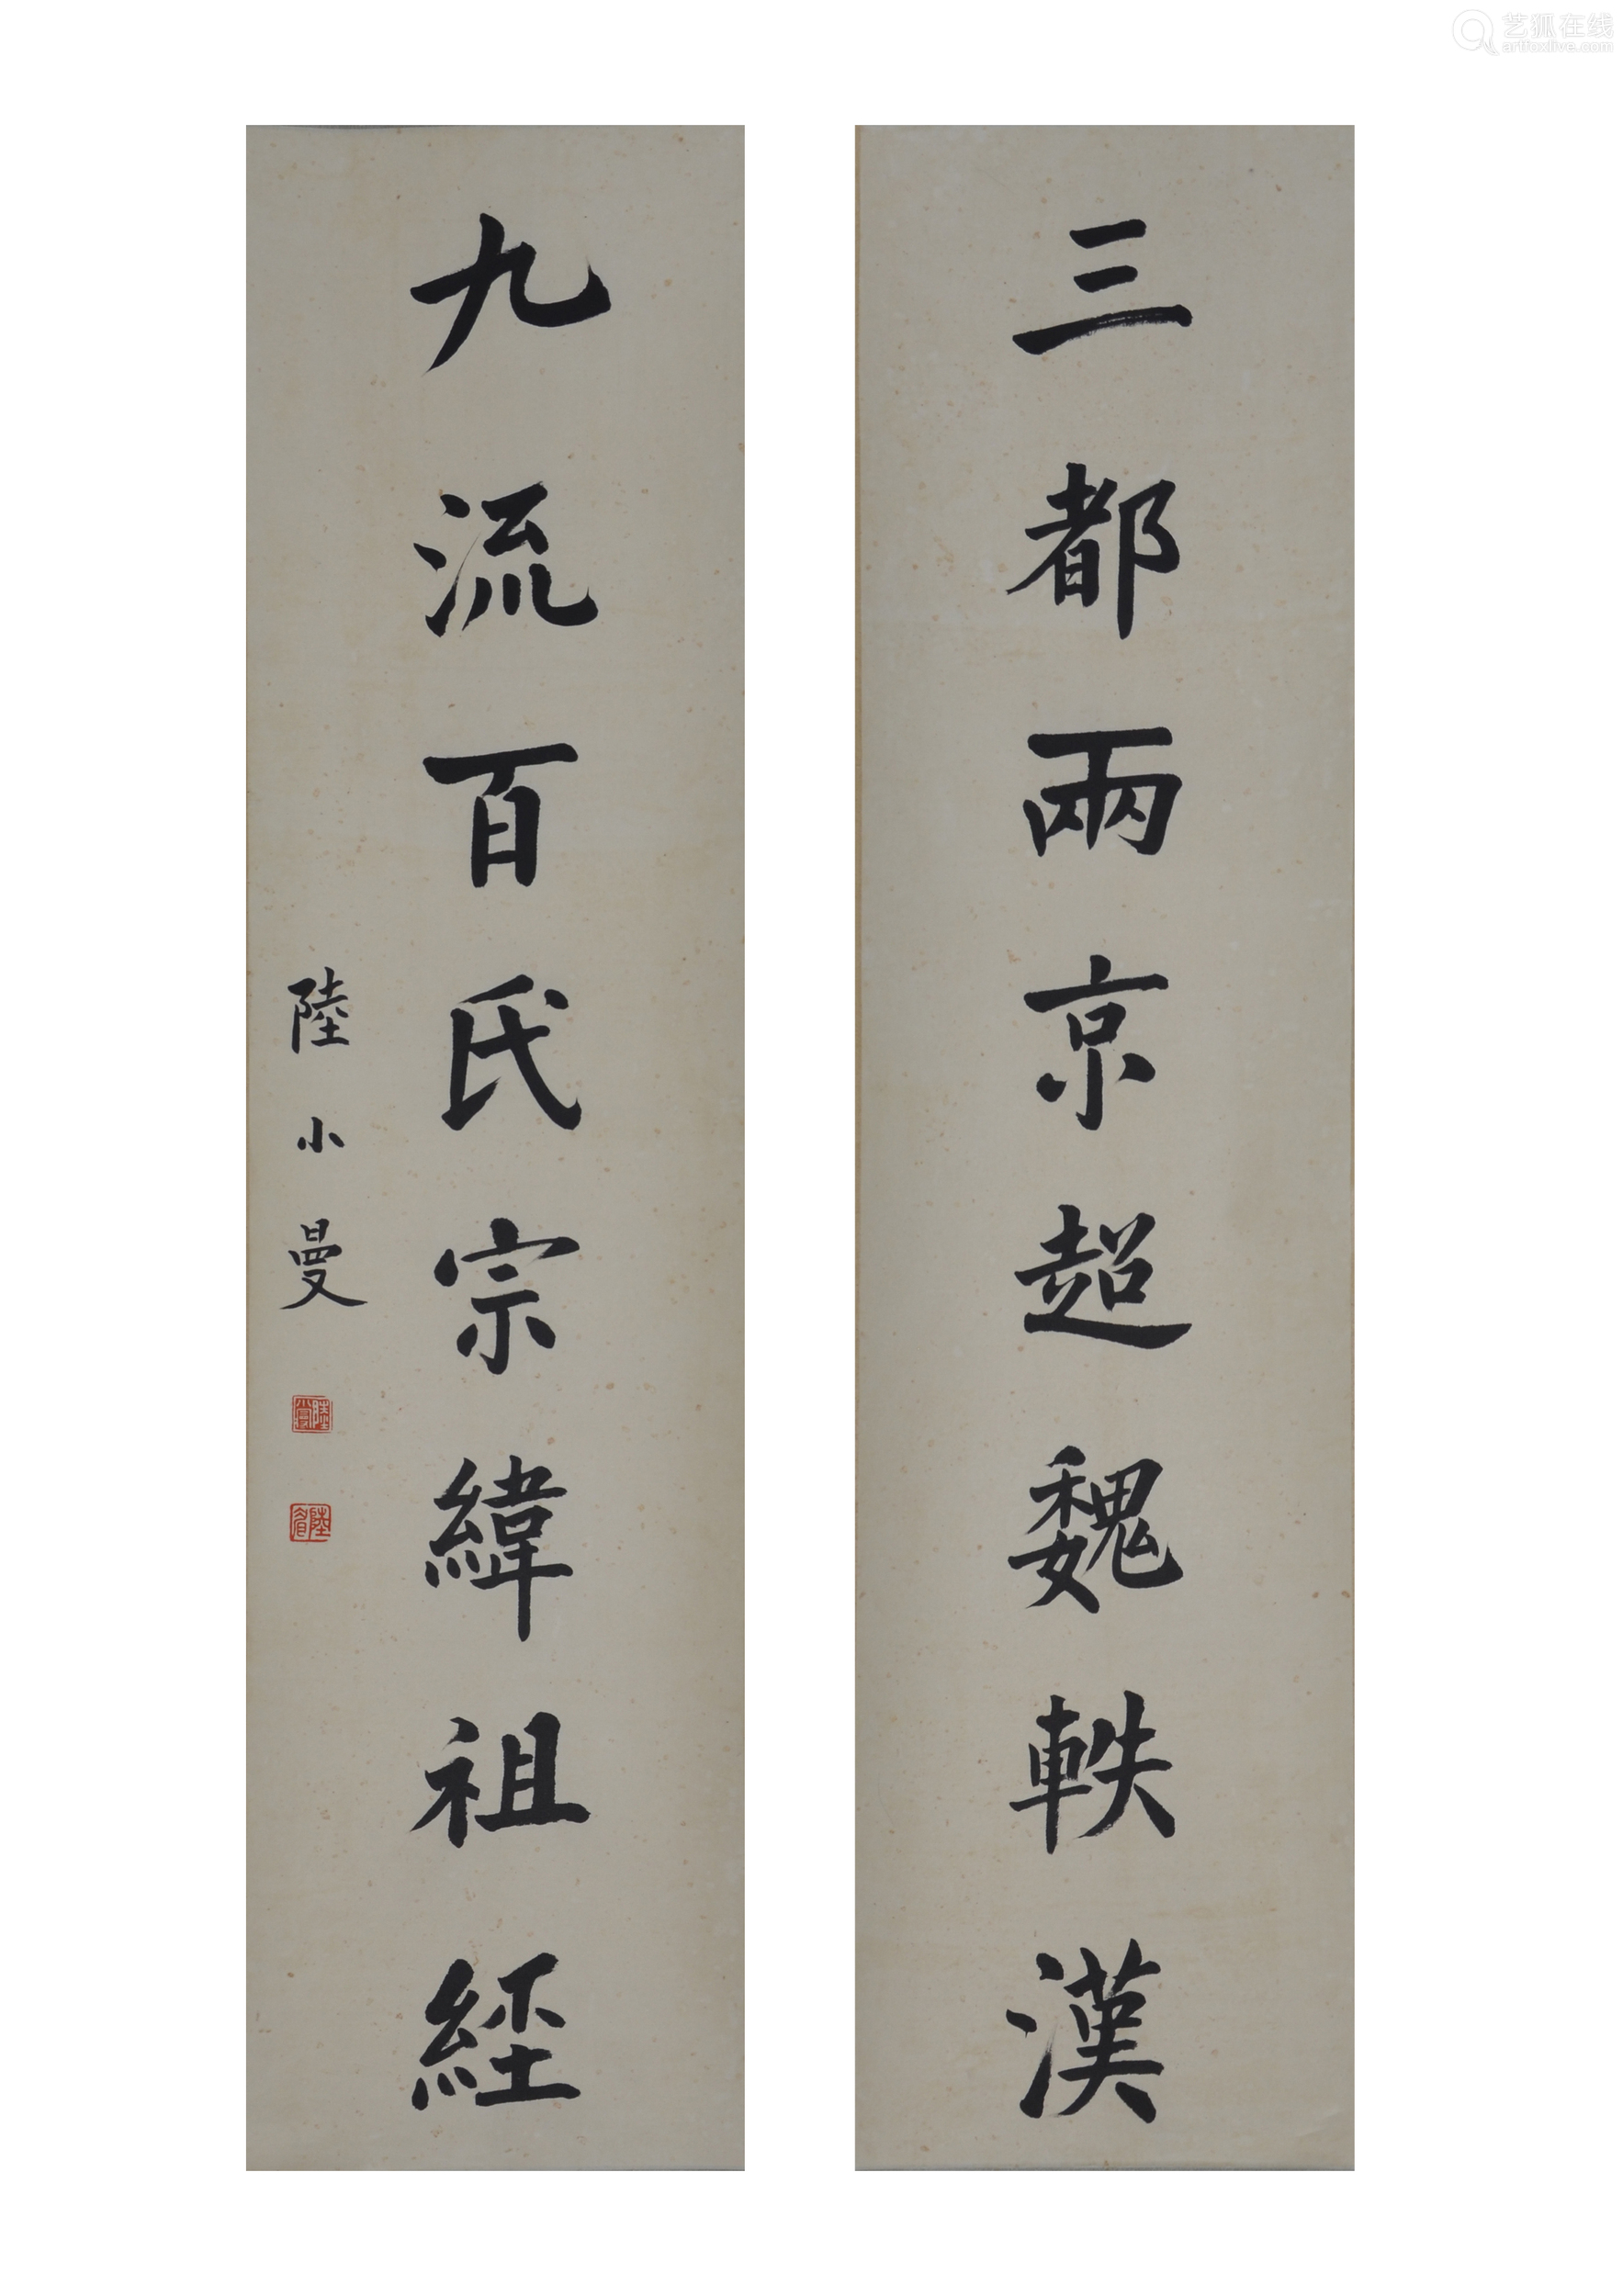 三都兩京超魏軼漢
九流百氏宗緯祖経
陸小曼
陸小曼
陸眉
艺狐在线
artfoxlive.com